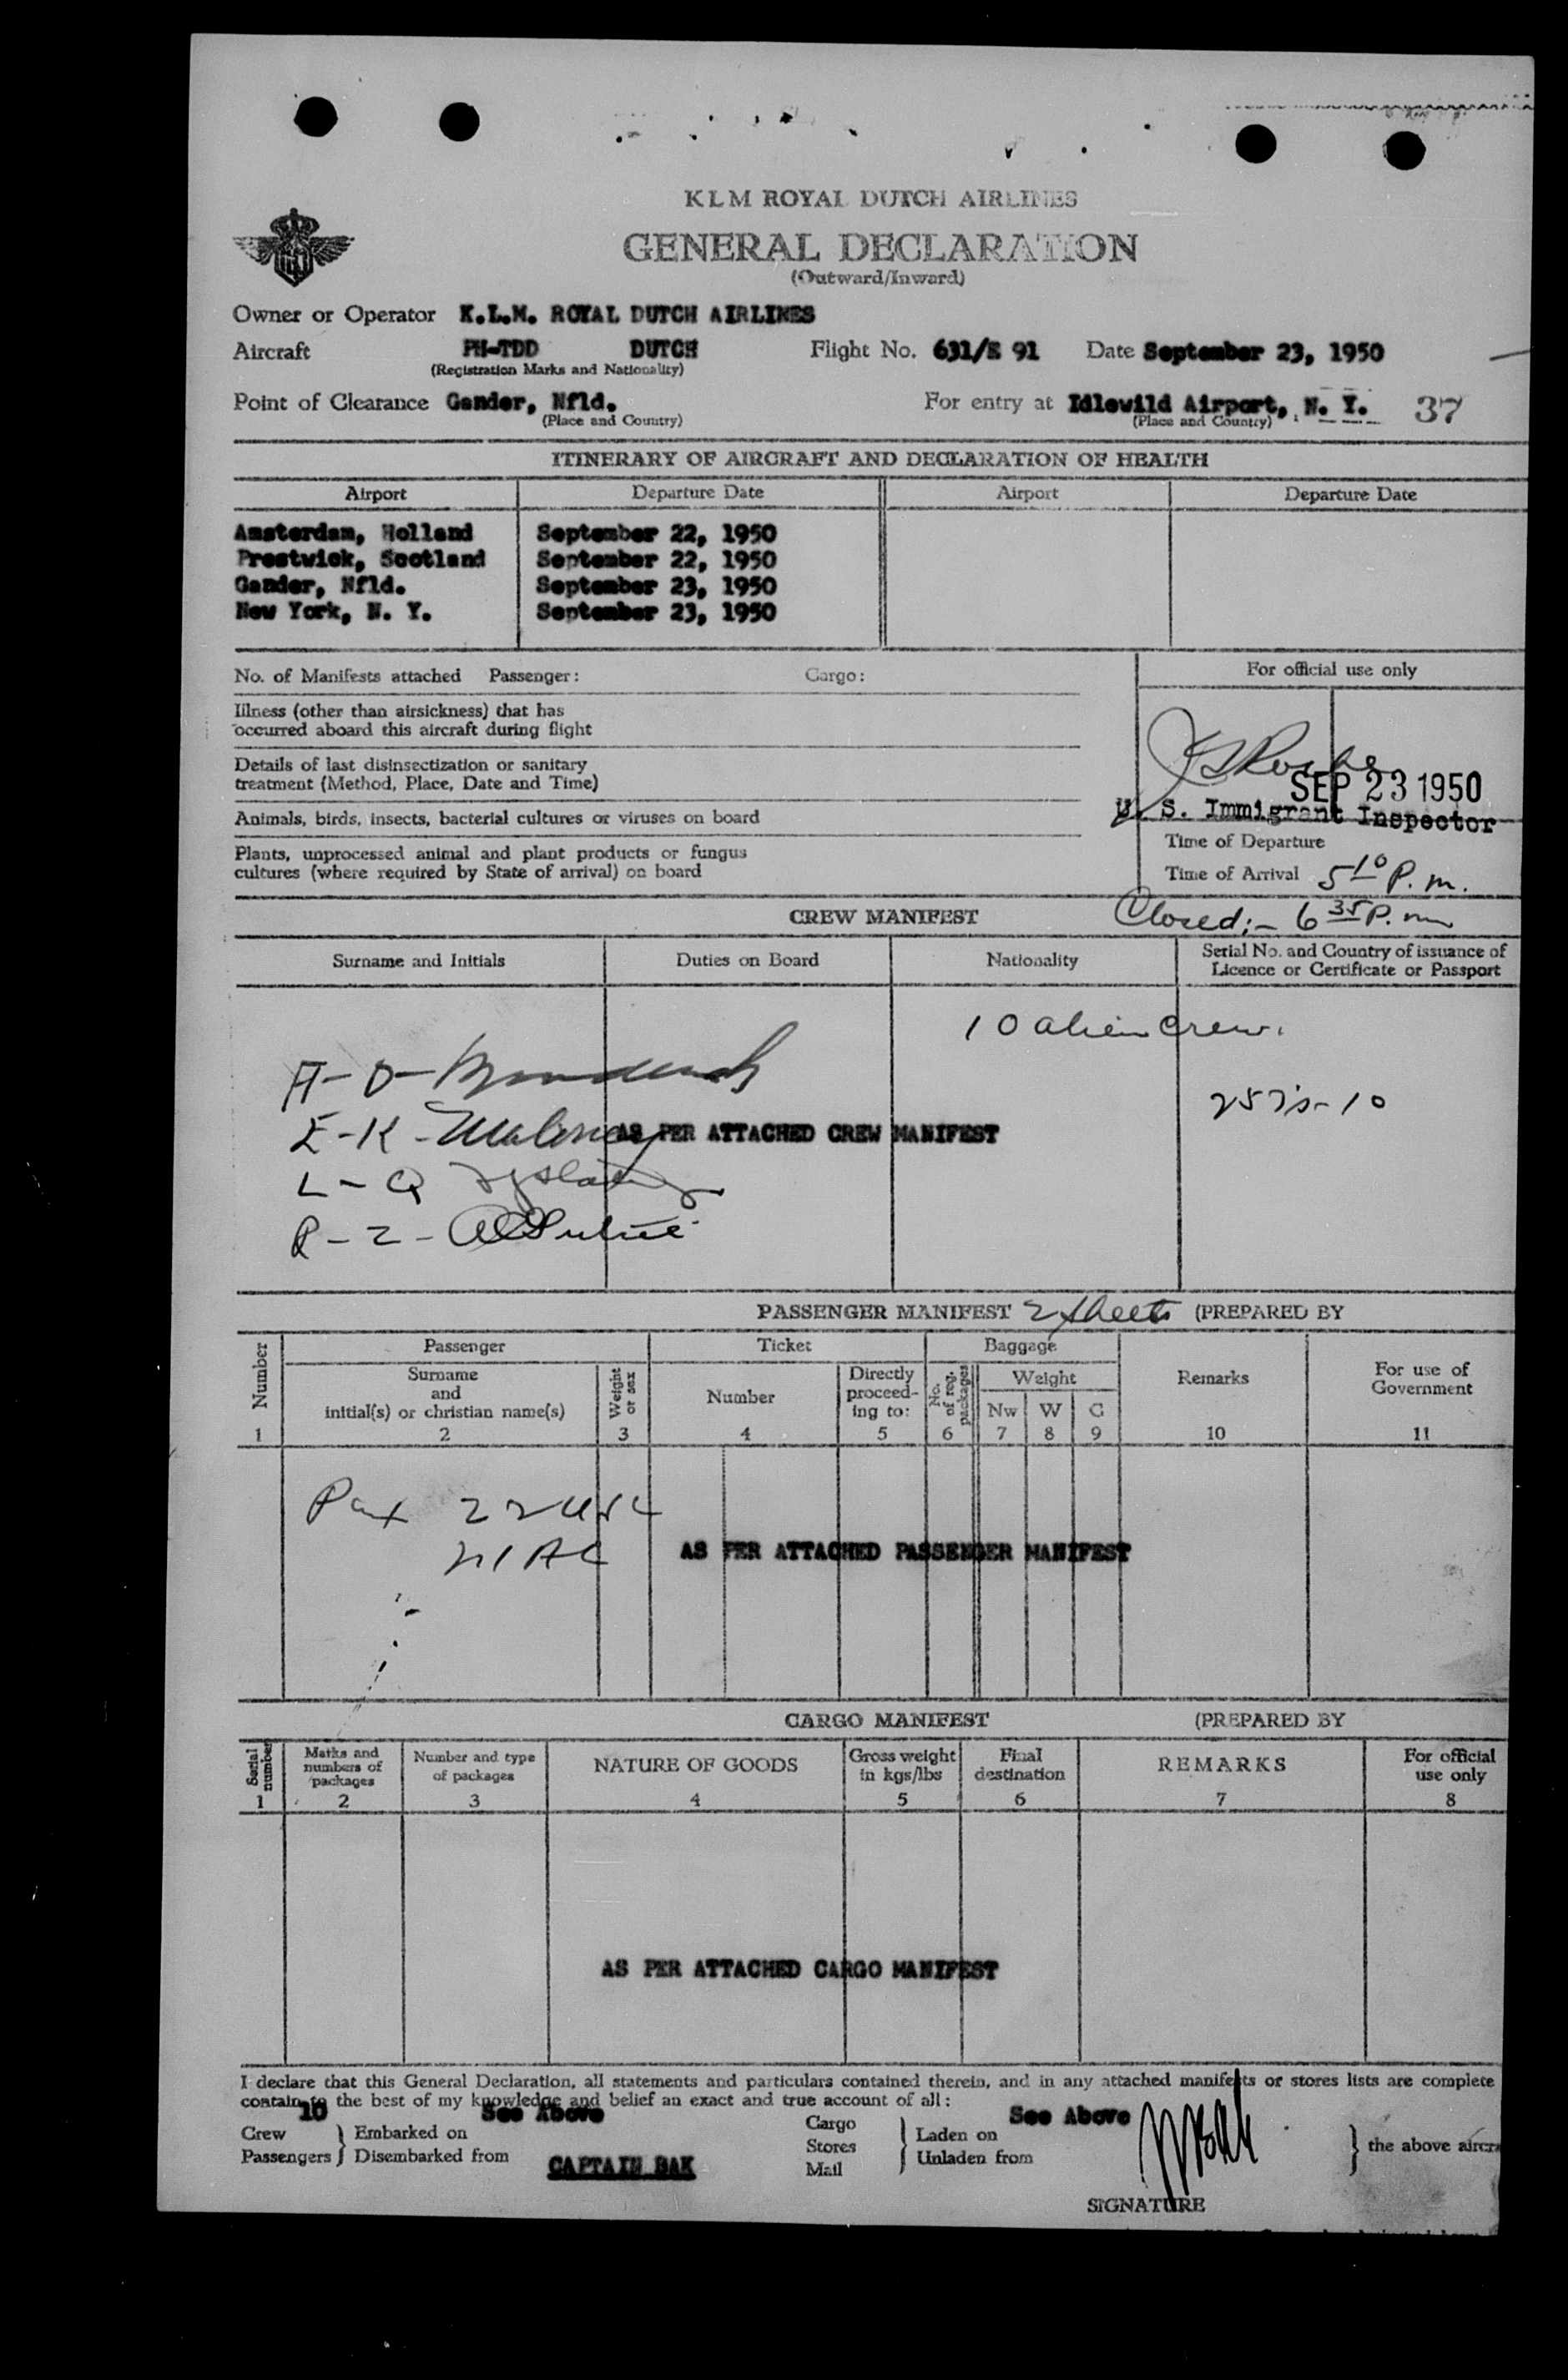 KLM ROYAL DUTCH AIRLINES
GENERAL DECLARATION
(Outward/Inward)
Owner or Operator K.L.M. ROYAL DUTCH AIRLINES
Aircraft PH-TDD DUTCH Flight No. 631/S 91 Date September 23, 1950
(Registration Marks and Nationality)
Point of Clearance Gander, Nfld. For entry at Idlewild Airport, N. Y. 37
(Place and Country) (Place and Country)
ITINERARY OF AIRCRAFT AND DECLARATION OF HEALTH
Airport Departure Date Airport Departure Date
Amsterdam, Holland September 22, 1950
Prestwick, Scotland September 22, 1950
Gander, Nfld. September 23, 1950
New York, N. Y. September 23, 1950
No. of Manifests attached Passenger: Cargo: For official use only
Illness (other than airsickness) that has
occurred aboard this aircraft during flight
Details of last disinsectization or sanitary
treatment (Method, Place, Date and Time)
SEP 23 1950
Animals, birds, insects, bacterial cultures or viruses on board U. S. Immigrant Inspector
Time of Departure
Plants, unprocessed animal and plant products or fungus
cultures (where required by State of arrival) on board Time of Arrival 5 10 P. m.
CREW MANIFEST Closed:- 6 35 P. m
Surname and Initials Duties on Board Nationality Serial No. and Country of issuance of
Licence or Certificate or Passport
10 alien crew.
A-D-
257's-10
E-K- AS PER ATTACHED CREW MANIFEST
L-Q
R-Z-
PASSENGER MANIFEST 2 sheets (PREPARED BY
Number Passenger Ticket Baggage Remarks For use of
Government
Surname
and
initial(s) or christian name(s) Weight
or sex Number Directly
proceed-
ing to: No.
of reg.
packages Weight
Nw W C
1 2 3 4 5 6 7 8 9 10 11
Pax 22 USC
AS PER ATTACHED PASSENGER MANIFEST
CARGO MANIFEST (PREPARED BY
Serial
number Marks and
numbers of
packages Number and type
of packages NATURE OF GOODS Gross weight
in kgs/lbs Final
destination REMARKS For official
use only
1 2 3 4 5 6 7 8
AS PER ATTACHED CARGO MANIFEST
I declare that this General Declaration, all statements and particulars contained therein, and in any attached manifests or stores lists are complete
contain to the best of my knowledge and belief an exact and true account of all:
10 See Above See Above
Crew Embarked on Cargo Laden on
Passengers Disembarked from Stores Unladen from the above aircra
CAPTAIN BAK Mail
SIGNATURE